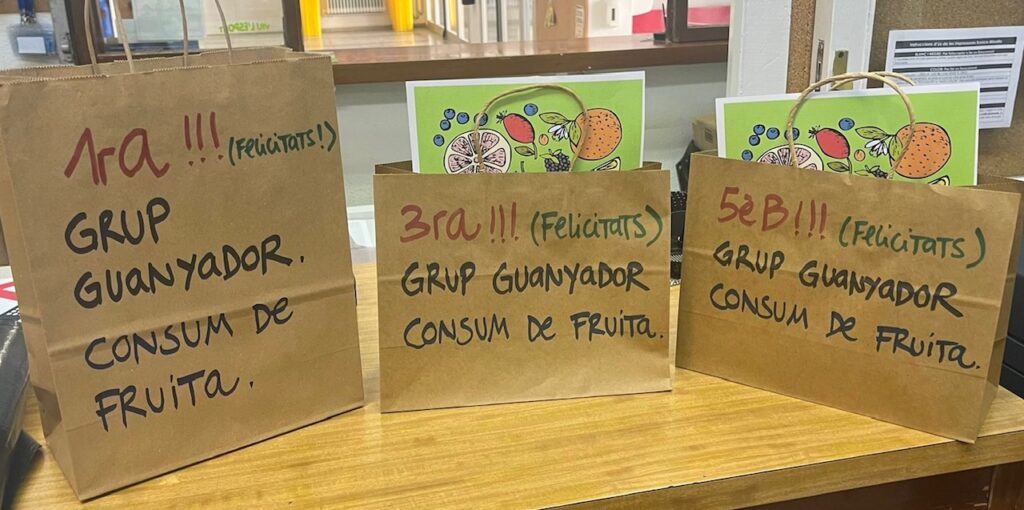 VIU L'ESPORT
1ra !!! (Felicitats!)
GRUP
GUANYADOR.
CONSUM DE
FRUITA.
3ra!!! (Felicitats)
GRUP GUANYADOR
CONSUM DE FRUITA.
5èB!!! (Felicitats)
GRUP GUANYADOR
CONSUM DE FRUITA.